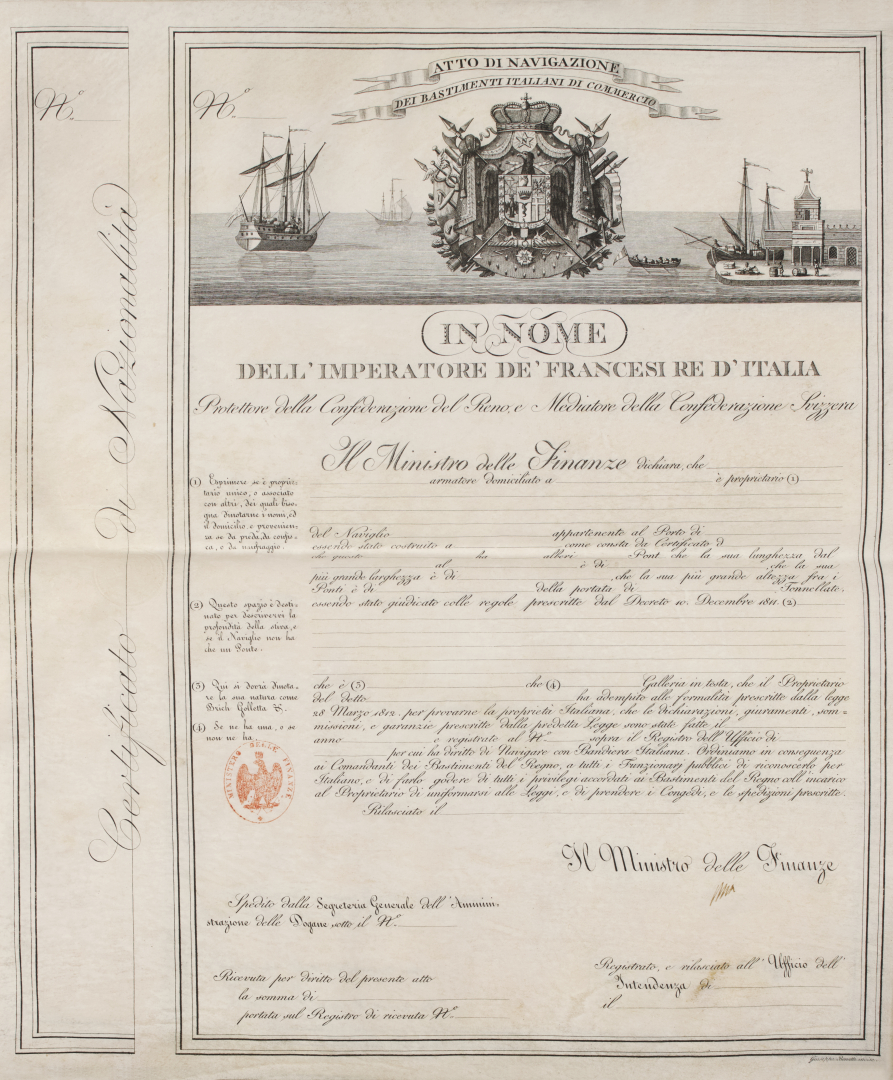 N.º
Certificato di Nazionalità
ATTO DI NAVIGAZIONE
DEI BASTIMENTI ITALIANI DI COMMERCIO
N.º
IN NOME
DELL'IMPERATORE DE' FRANCESI RE D'ITALIA
Protettore della Confederazione del Reno, e Mediatore della Confederazione Svizzera
Il Ministro delle Finanze dichiara, che
armatore domiciliato a è proprietario (1)
(1) Esprimere se è proprie-
tario unico, o associato
con altri, dei quali biso-
gna dinotarne i nomi, ed
il domicilio, e provenien-
za se da preda, da confis-
ca, e da naufragio.
del Naviglio appartenente al Porto di
essendo stato costruito a come consta da Certificato d
che questo ha alberi Pont. che la sua lunghezza dal
al è di che la sua
più grande larghezza è di , che la sua più grande altezza fra i
Ponti è di della portata di Tonnellate,
essendo stato giudicato colle regole prescritte dal Decreto 10. Decembre 1811. (2)
(2) Questo spazio è desti-
nato per descrivervi la
profondità della stiva, e
se il Naviglio non ha
che un Ponte.
(3) Qui si dovrà dinota-
re la sua natura come
Brich Golletta &.
(4) Se ne ha una, o se
non ne ha
che è (3) che (4) Galleria in testa, che il Proprietario
del detto ha adempito alle formalità prescritte dalla legge
28 Marzo 1812. per provarne la proprietà Italiana, che le dichiarazioni, giuramenti, som-
missioni, e garanzie prescritte dalla predetta Legge sono state fatte il
anno e registrato al N.º sopra il Registro dell'Ufficio di
per cui ha diritto di Navigare con Bandiera Italiana. Ordiniamo in conseguenza
ai Comandanti dei Bastimenti del Regno, a tutti i Funzionarj pubblici di riconoscerlo per
Italiano, e di farlo godere di tutti i privilegi accordati ai Bastimenti del Regno coll'incarico
al Proprietario di uniformarsi alle Leggi, e di prendere i Congedi, e le spedizioni prescritte.
Rilasciato il
MINISTERO DELLE FINANZE
Il Ministro delle Finanze
Spedito dalla Segreteria Generale dell'Ammini-
strazione delle Dogane sotto il N.º
Ricevuta per diritto del presente atto
la somma di
portata sul Registro di ricevuta N.º
Registrato, e rilasciato all'Ufficio dell'
Intendenza di
il